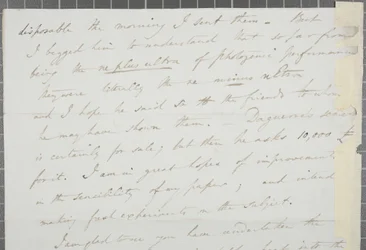 disposable the morning I sent them. But
I begged him to understand that so far from
being the ne plus ultra of photogenic performance
they were literally the ne minus ultra
and I hope he said so to the friends to whom
he may have shown them. — Daguerre's secret
is certainly for sale; but then he asks 10,000 £
for it. I am in great hopes of improvement
in the sensibility of my papers; and intend
making fresh experiments on the subject.
I am glad to see you have undertaken the